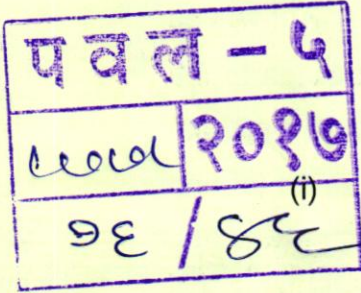 पवल - ५
२०१७
(i)
१६ / ४५